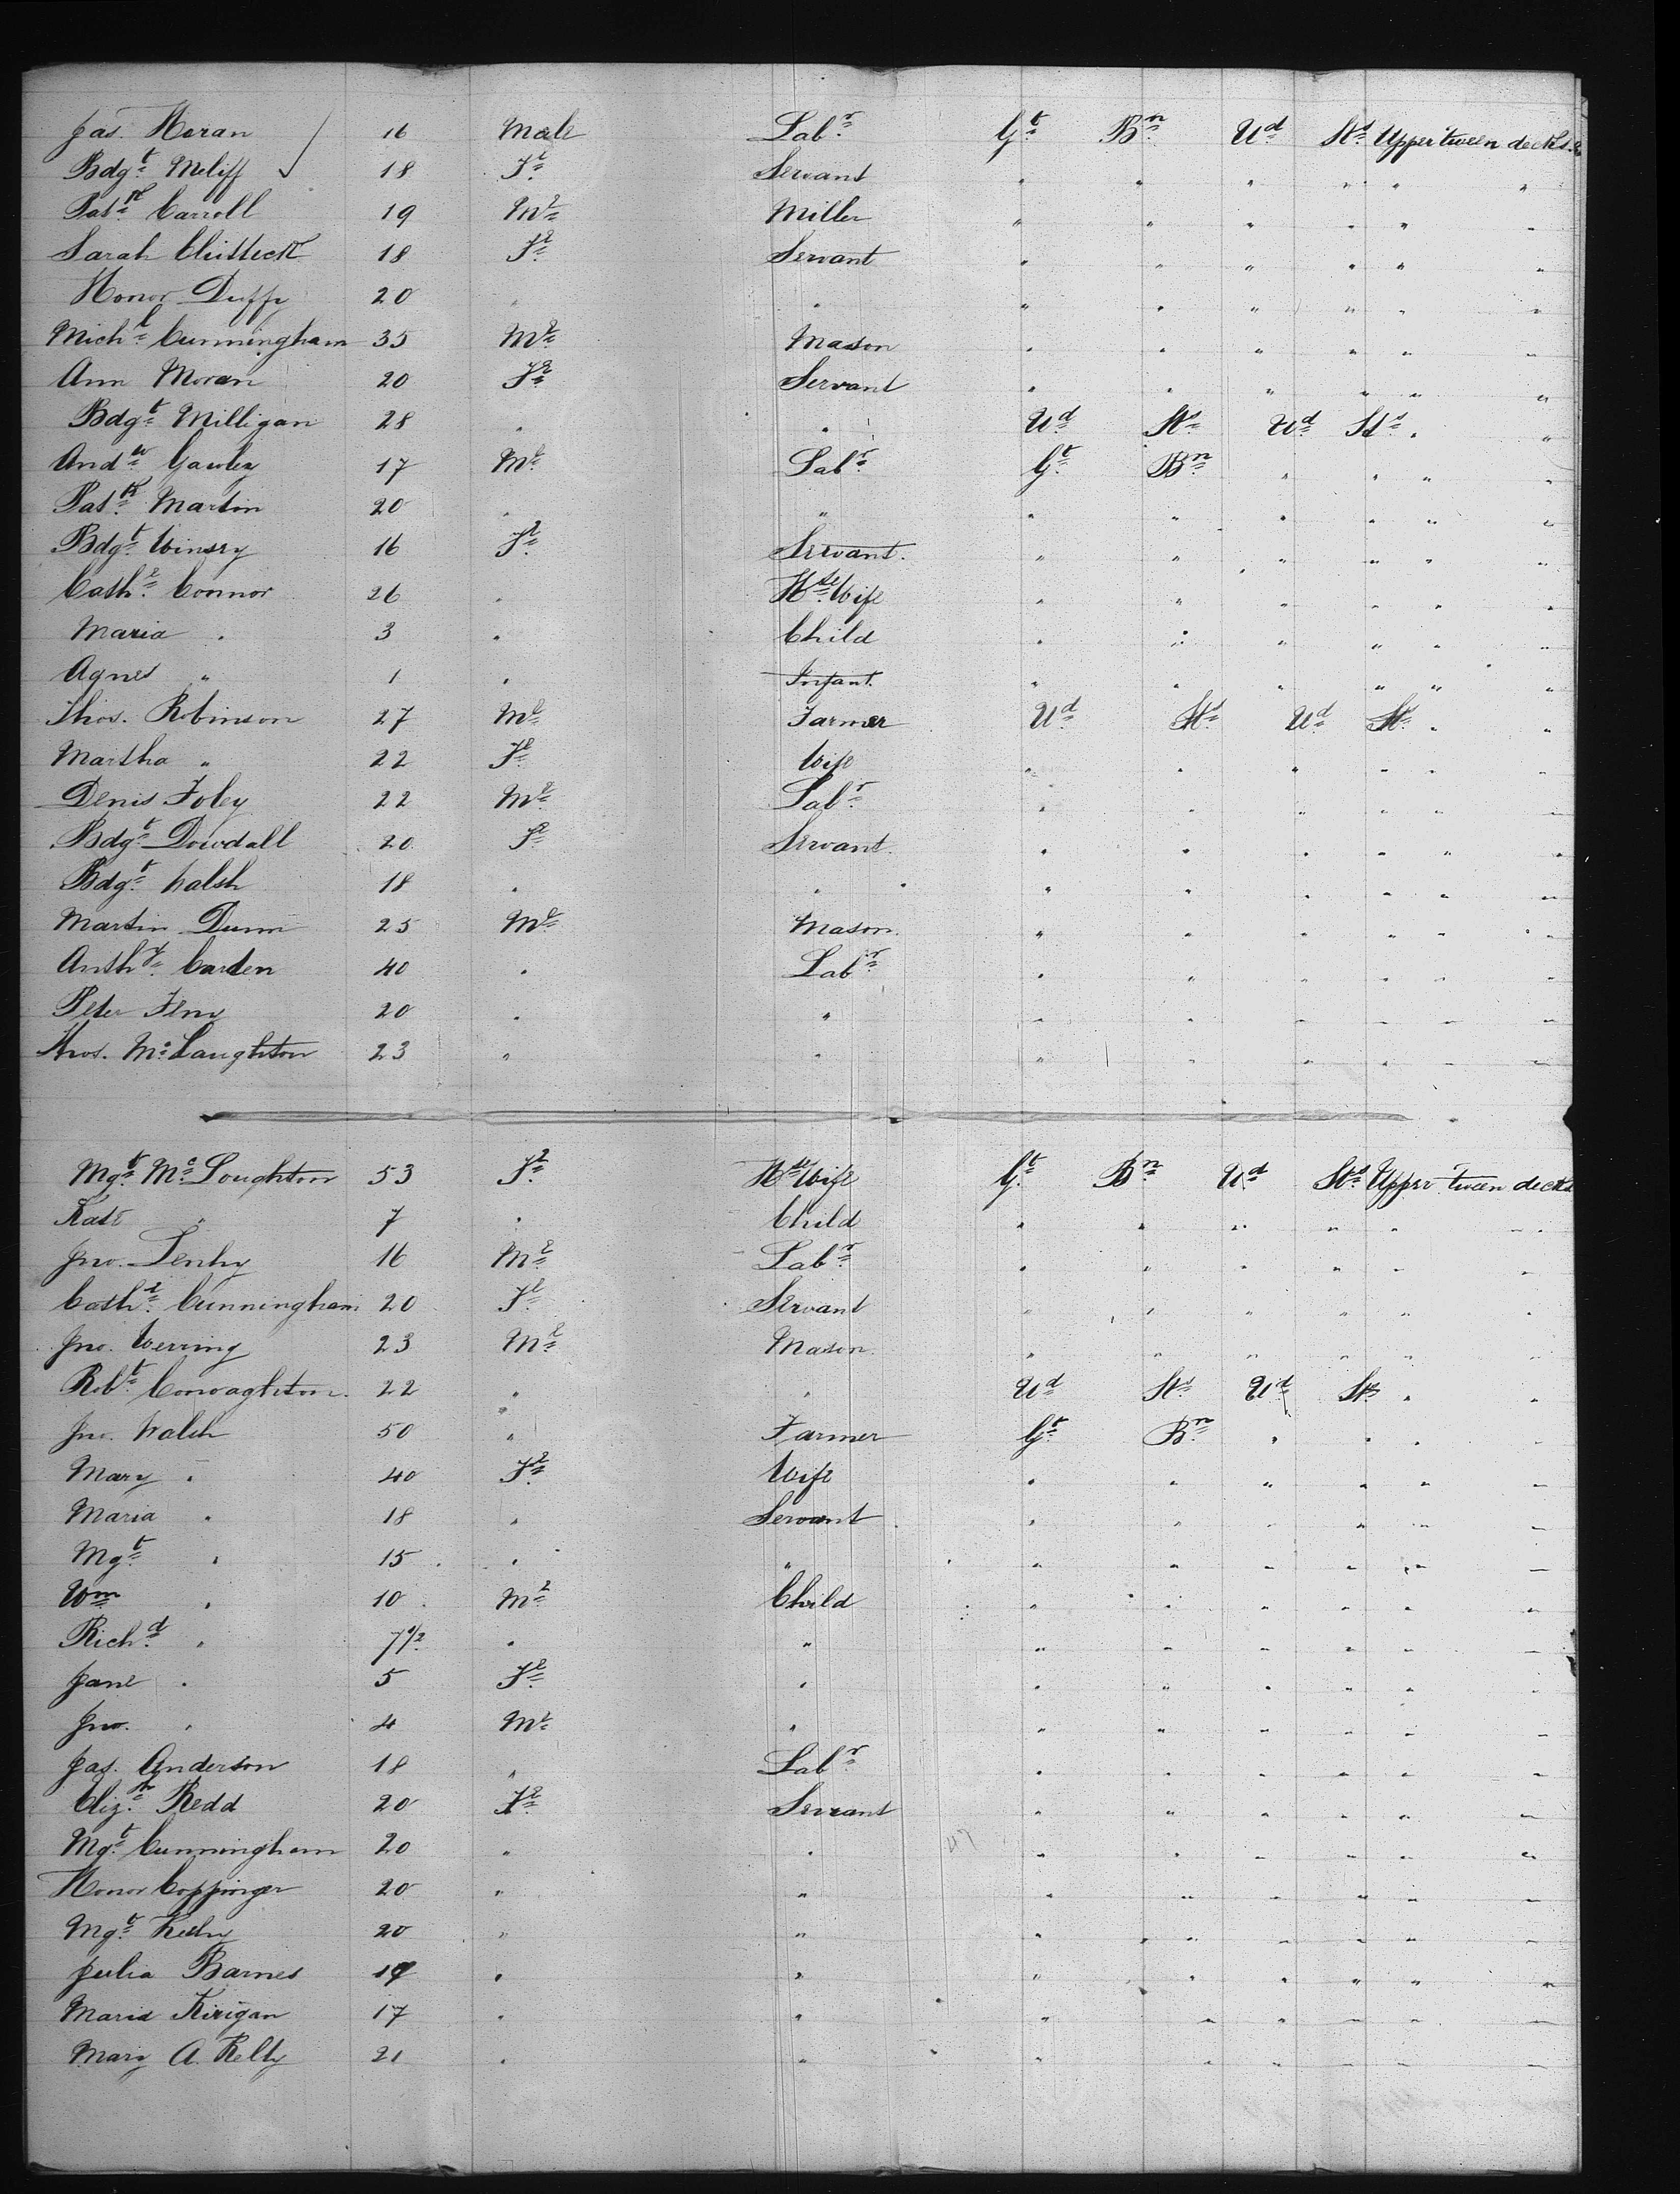 Jas. Horan 16 Male Labr Gt Bn Ud Sts Upper tween decks
Bdgt Meliff 18 Fe Servant " " " " " "
Patk Carroll 19 Me Miller " " " " " "
Sarah 18 Fe Servant " " " " " "
Honor Duffy 20 " " " " " " " "
Michl Cunningham 35 Me Mason " " " " " "
Ann Moran 20 Fe Servant " " " " " "
Bdgt Milligan 28 " " Ud Sts Ud Sts " "
Andw Gawley 17 Me Labr Gt Bn " " " "
Patk Martin 20 " " " " " " " "
Bdgt Winsry 16 Fe Servant. " " " " " "
Cathe Connor 26 " Hse Wife " " " " " "
Maria " 3 " Child " " " " " "
Agnes " 1 " Infant. " " " " " "
Thos. Robinson 27 Me Farmer Ud Sts Ud Sts " "
Martha " 22 Fe Wife " " " " " "
Denis Foley 22 Me Labr " " " " " "
Bdgt Dowdall 20 Fe Servant. " " " " " "
Bdgt Walsh 18 " " " " " " " "
Martin Dunn 25 Me Mason. " " " " " "
Anthy Carden 40 " Labr " " " " " "
Peter 20 " " " " " " " "
Thos. McLaughton 23 " " " " " " " "
Mgt McLoughton 53 Fe Hse Wife Gt Bn Ud Sts Upper tween decks
Kate " 7 " Child " " " " " "
Jno. Lenhy 16 Me Labr " " " " " "
Cathe Cunningham 20 Fe Servant " " " " " "
Jno. Werring 23 Me Mason. " " " " " "
Robt Conoaghton. 22 " " Ud Sts Ud Sts " "
Jno. Walsh 50 " Farmer Gt Bn " " " "
Mary " 40 Fe Wife " " " " " "
Maria " 18 " Servant " " " " " "
Mgt " 15 " " " " " " " "
Wm " 10 Me Child " " " " " "
Richd " 7 1/2 " " " " " " " "
Jane " 5 Fe " " " " " " "
Jno. " 4 Me " " " " " " "
Jas. Anderson 18 " Labr " " " " " "
Elizh Redd 20 Fe Servant " " " " " "
Mgt Cunningham 20 " " " " " " " "
Honor Coppinger 20 " " " " " " " "
Mgt Kelly 20 " " " " " " " "
Julia Barnes 19 " " " " " " " "
Maria Kirigan 17 " " " " " " " "
Mary A. Kelly 21 " " " " " " " "